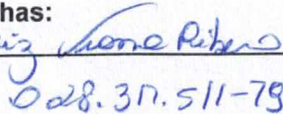 has:
iz Viana Ribeiro
028.317.511-79